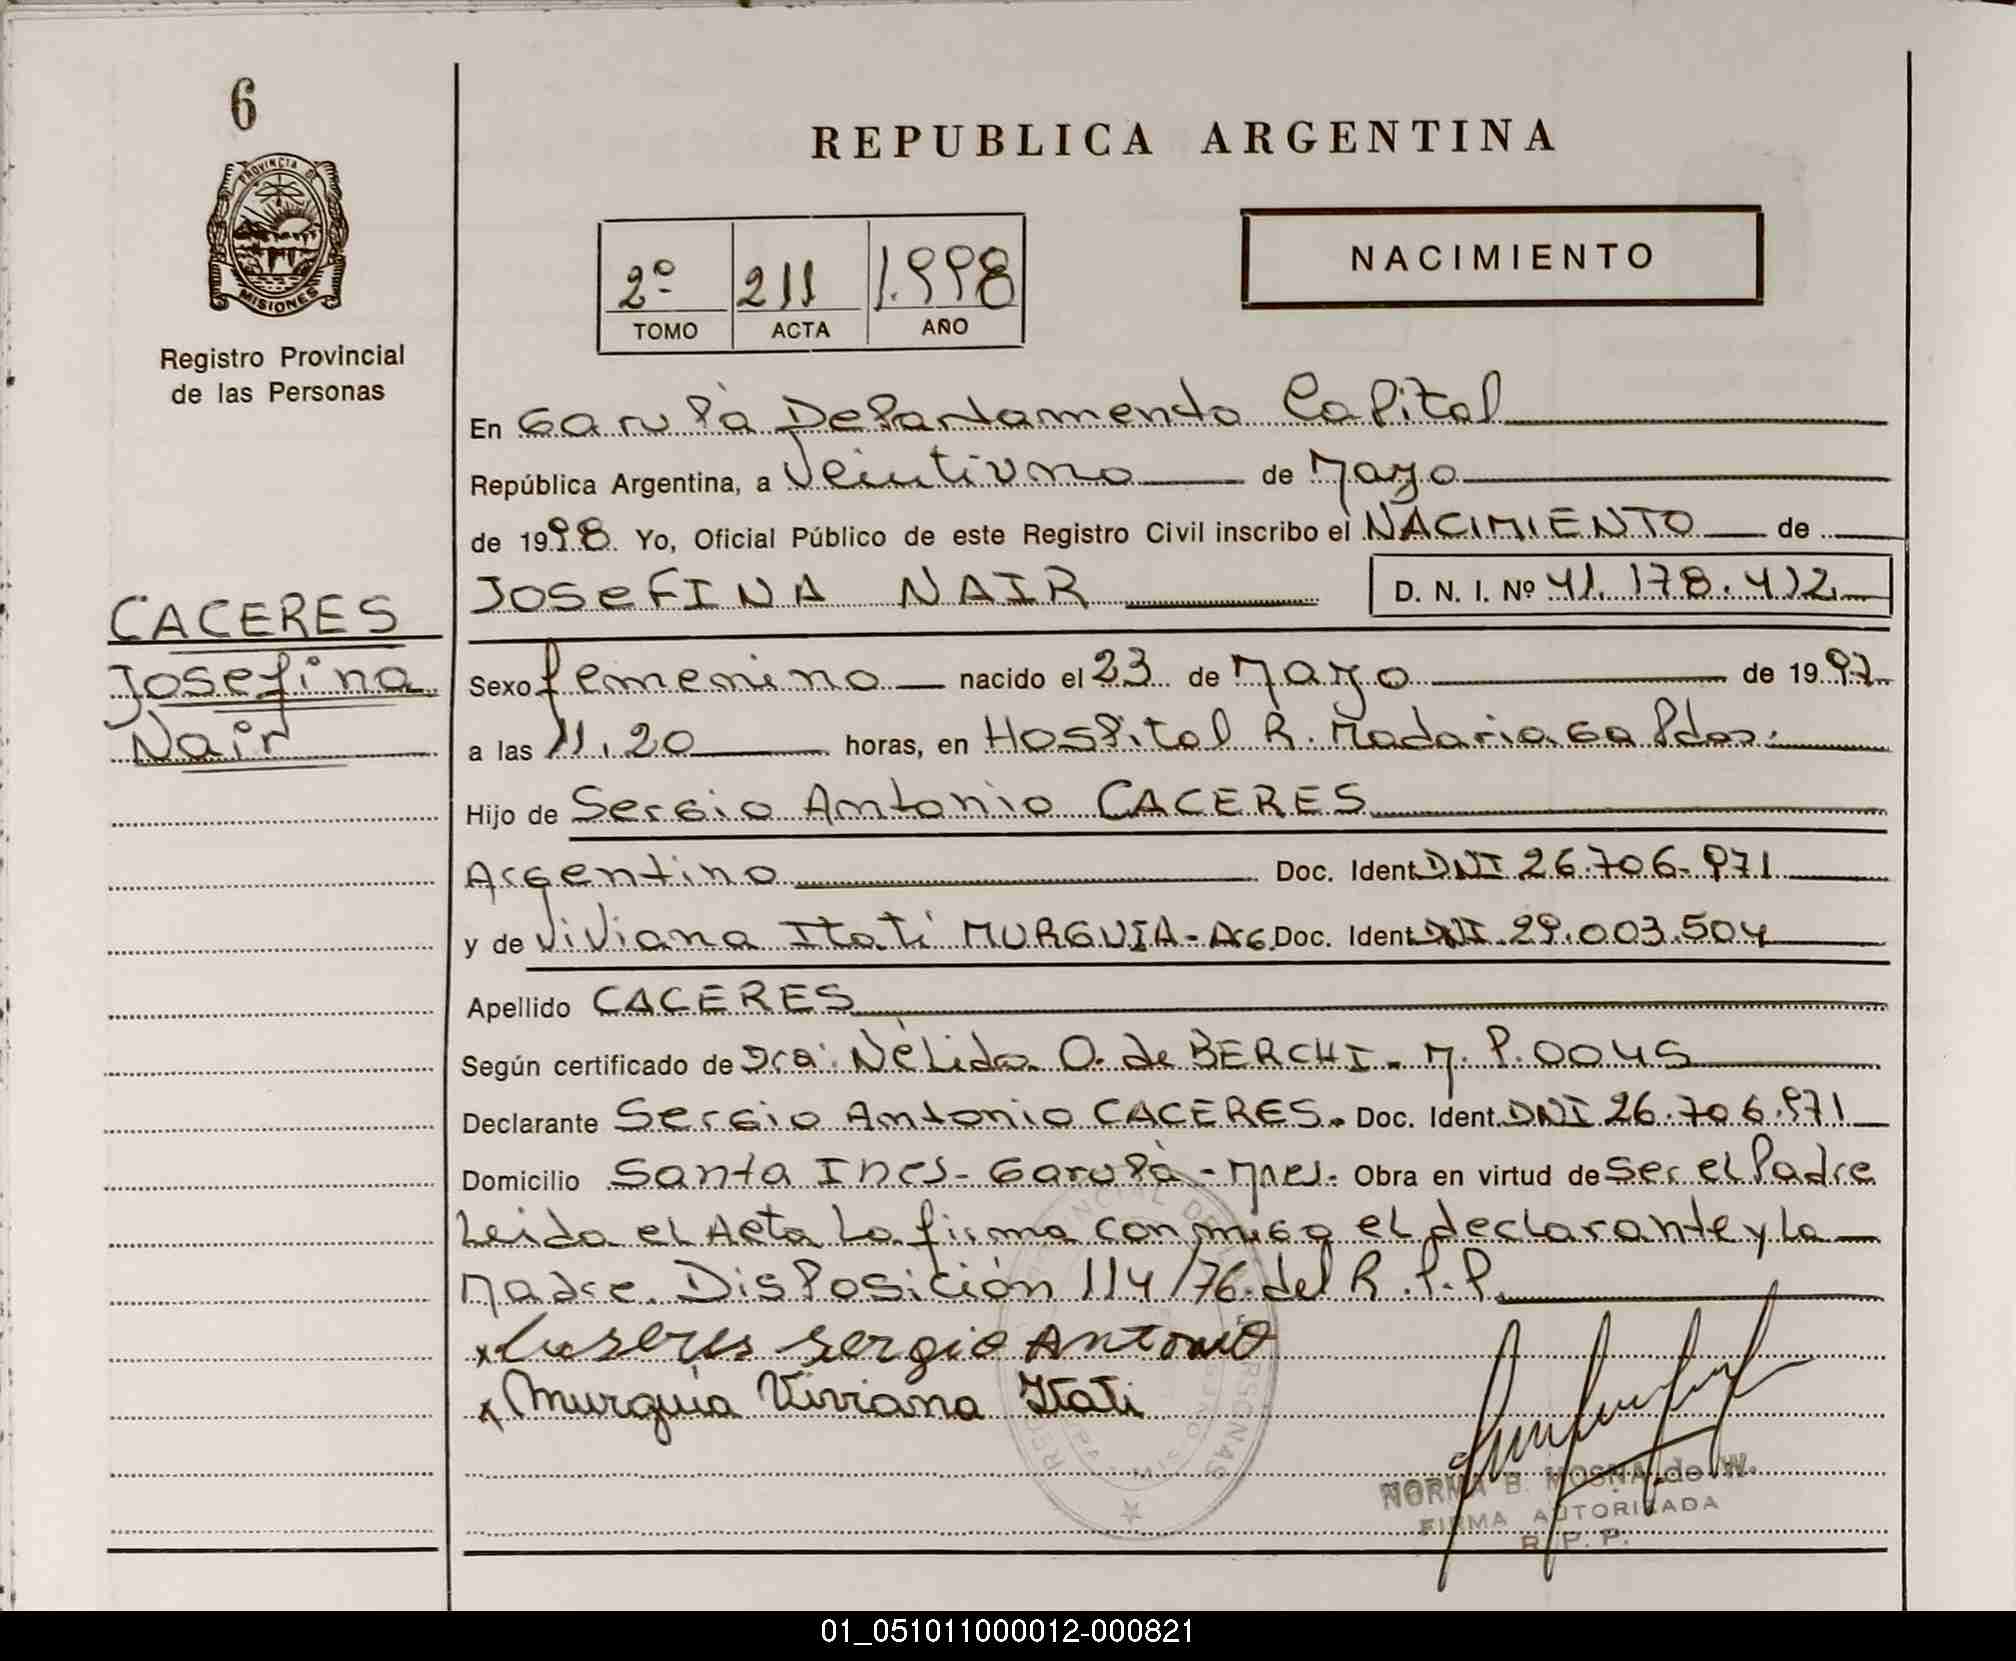 6
PROVINCIA DE
MISIONES
Registro Provincial
de las Personas
CACERES
Josefina
Nair
REPUBLICA ARGENTINA
2º 211 1.998
TOMO ACTA AÑO
NACIMIENTO
En Garupà Departamento Capital
República Argentina, a Veintiuno de Mayo
de 1998. Yo, Oficial Público de este Registro Civil inscribo el NACIMIENTO de
JOSeFINA NAIR D. N. I. Nº 41.178.412
Sexo femenino nacido el 23 de Mayo de 1997
a las 11.20 horas, en Hospital R. Madariaga Pdas.
Hijo de Sergio Antonio CACERES
Argentino Doc. Ident. DNI 26.706.971
y de Viviana Itatí MURGUIA - Arg. Doc. Ident. DNI 29.003.504
Apellido CACERES
Según certificado de Dra. Nèlida O. de BERCHI - M. P. 0045
Declarante Sergio Antonio CACERES. Doc. Ident. DNI 26.706.971
Domicilio Santa Ines - Garupà - Mnes. Obra en virtud de Ser el Padre
Leida el Acta La firma conmigo el declarante y La
Madre. Disposición 114/76 del R.P.P.
x Caseres Sergio Antonio
x Murguia Viviana Itati
NORMA B. MOSNA de W.
FIRMA AUTORIZADA
R. P. P.
01_051011000012-000821